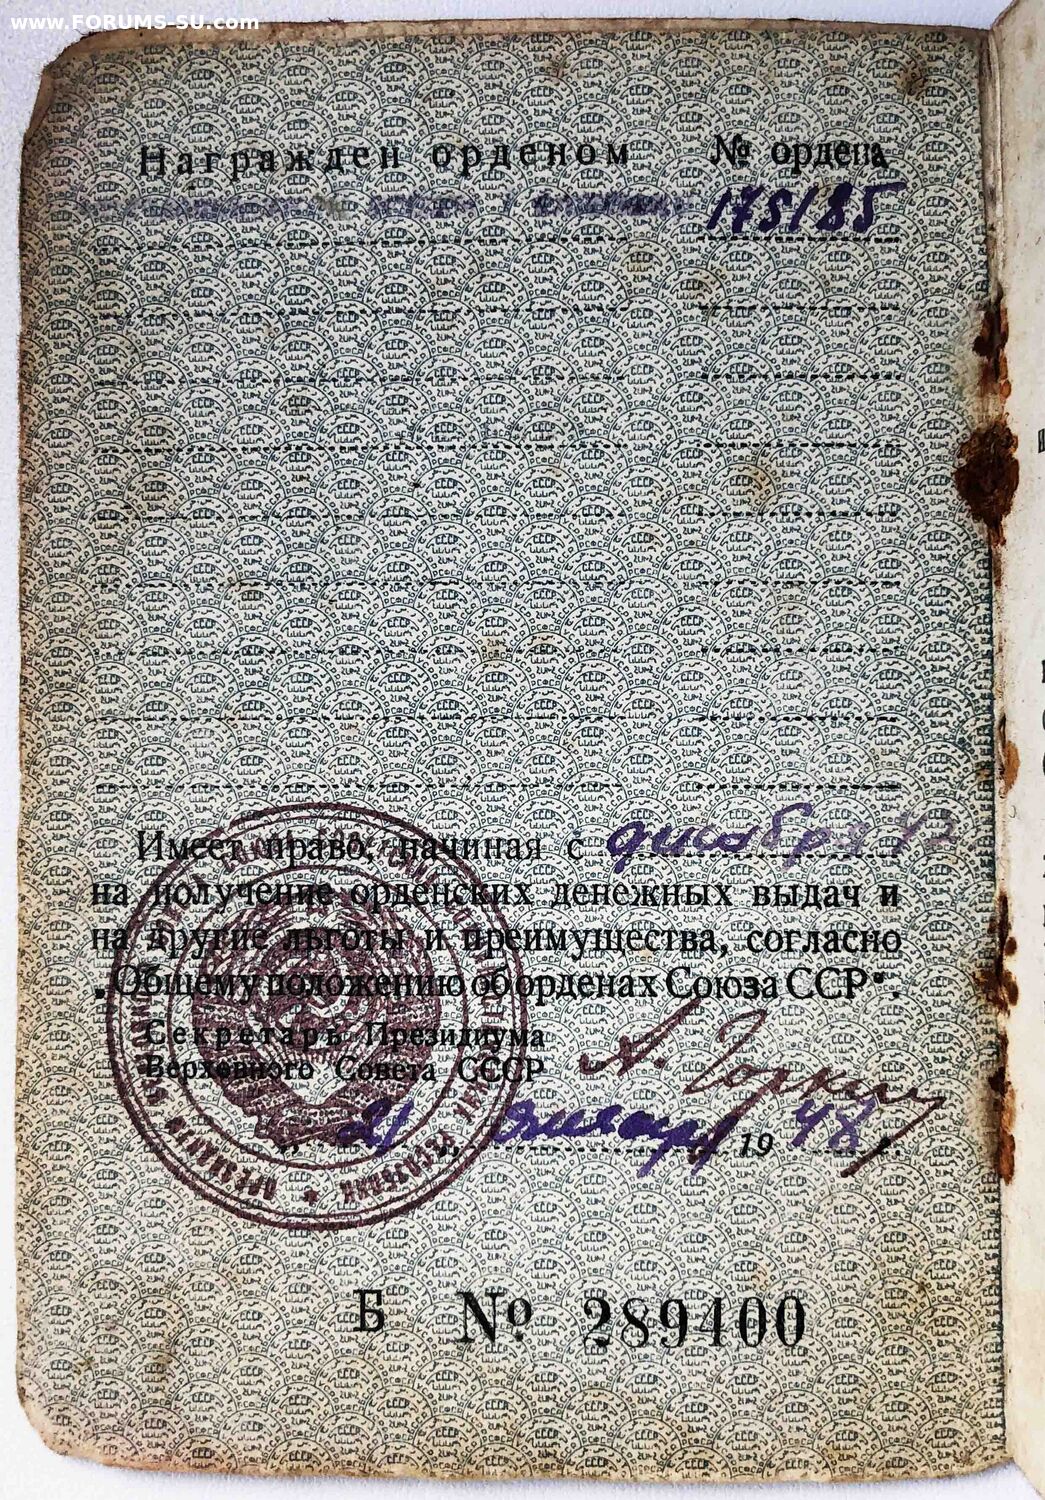 www.FORUMS-SU.com
Награжден орденом № ордена
175185
Имеет право, начиная с декабря 47
на получение орденских денежных выдач и
на другие льготы и преимущества, согласно
„Общему положению об орденах Союза ССР“.
Секретарь Президиума
Верховного Совета СССР
А. Горкин
„21„ января 1948 г.
Б № 289400